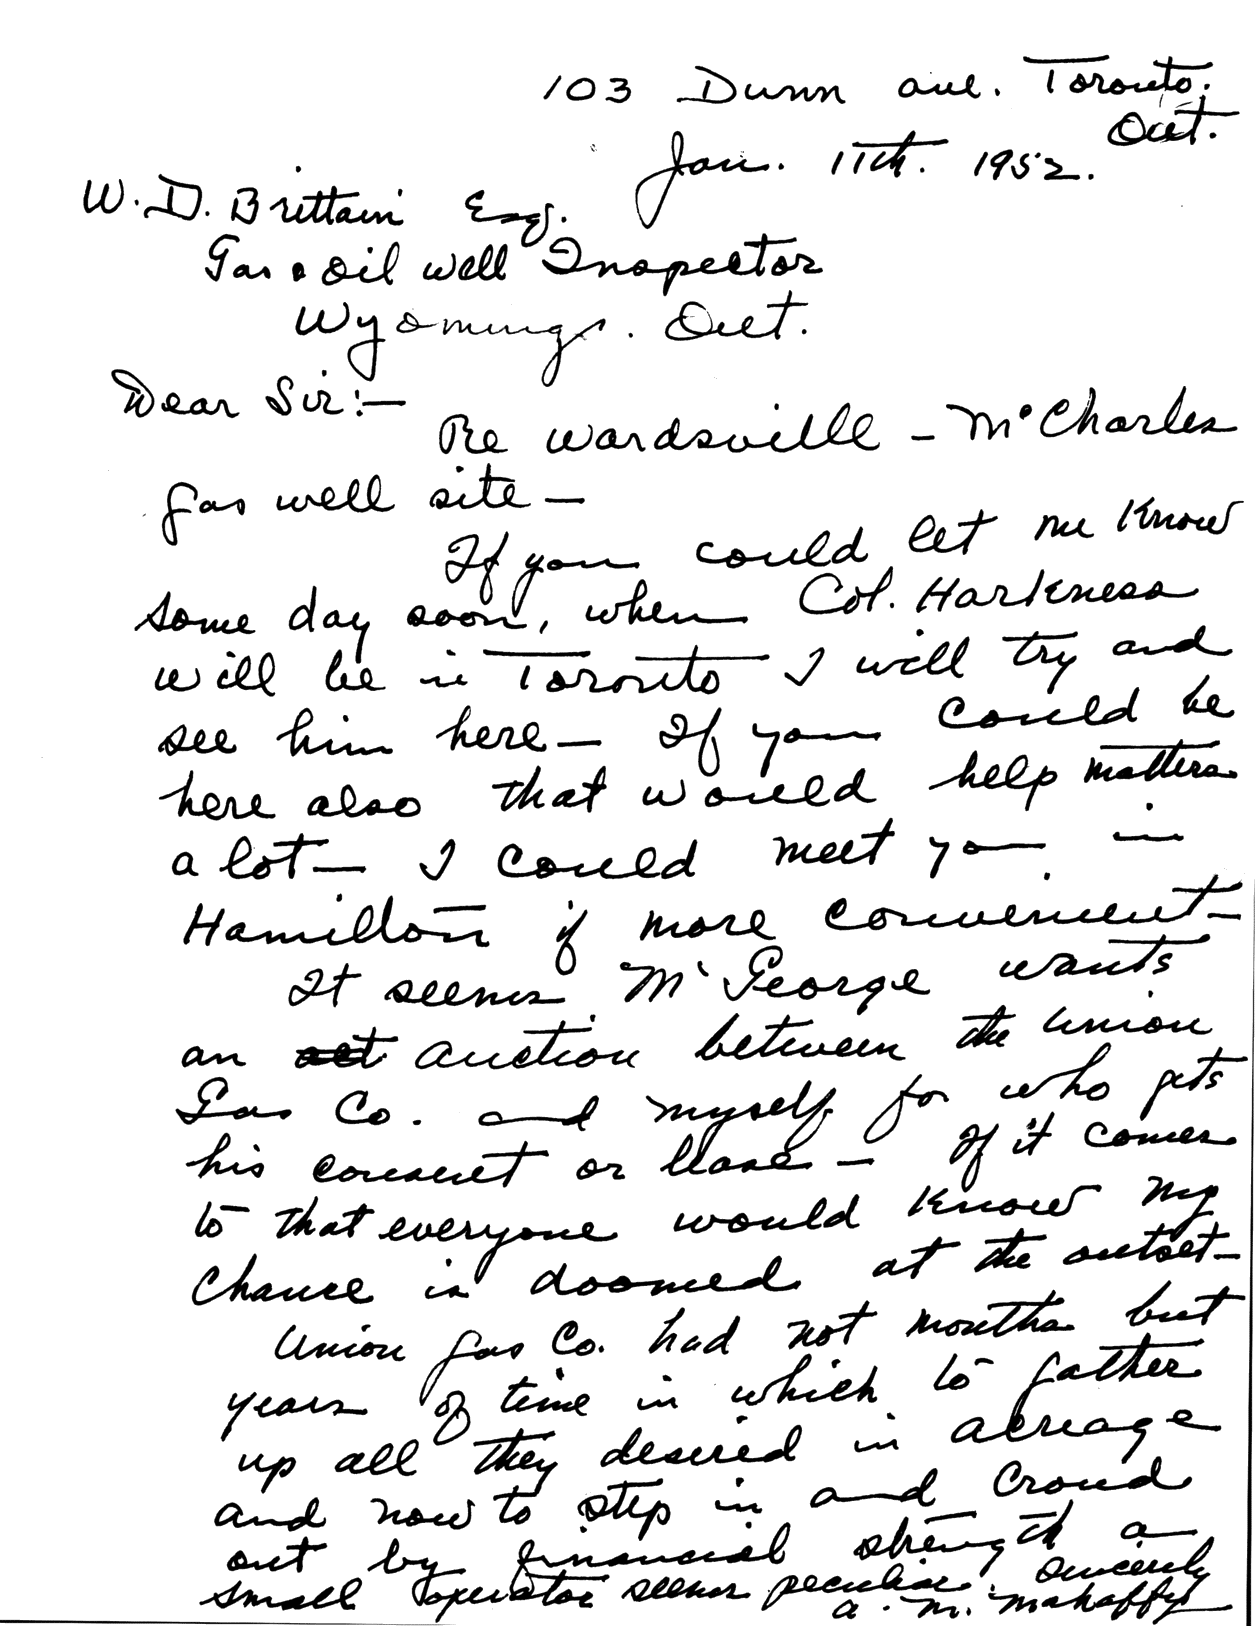 103 Dunn ave. Toronto.
Ont.
Jan. 11th. 1952.
W. D. Brittain Esq.
Gas & Oil well Inspector
Wyoming. Ont.
Dear Sir:—
Re Wardsville – McCharles
gas well site –
If you could let me know
some day soon, when Col. Harkness
will be in Toronto I will try and
see him here – If you could be
here also that would help matters
a lot – I could meet you in
Hamilton if more convenient –
It seems McGeorge wants
an act auction between the Union
Gas Co. and myself for who gets
his consent or lease – If it comes
to that everyone would know my
chance is doomed at the outset –
Union Gas Co. had not months but
years of time in which to gather
up all they desired in acreage
and now to step in and croud
out by financial strength a
small operator seems peculiar. Sincerely
A. M. Mahaffy